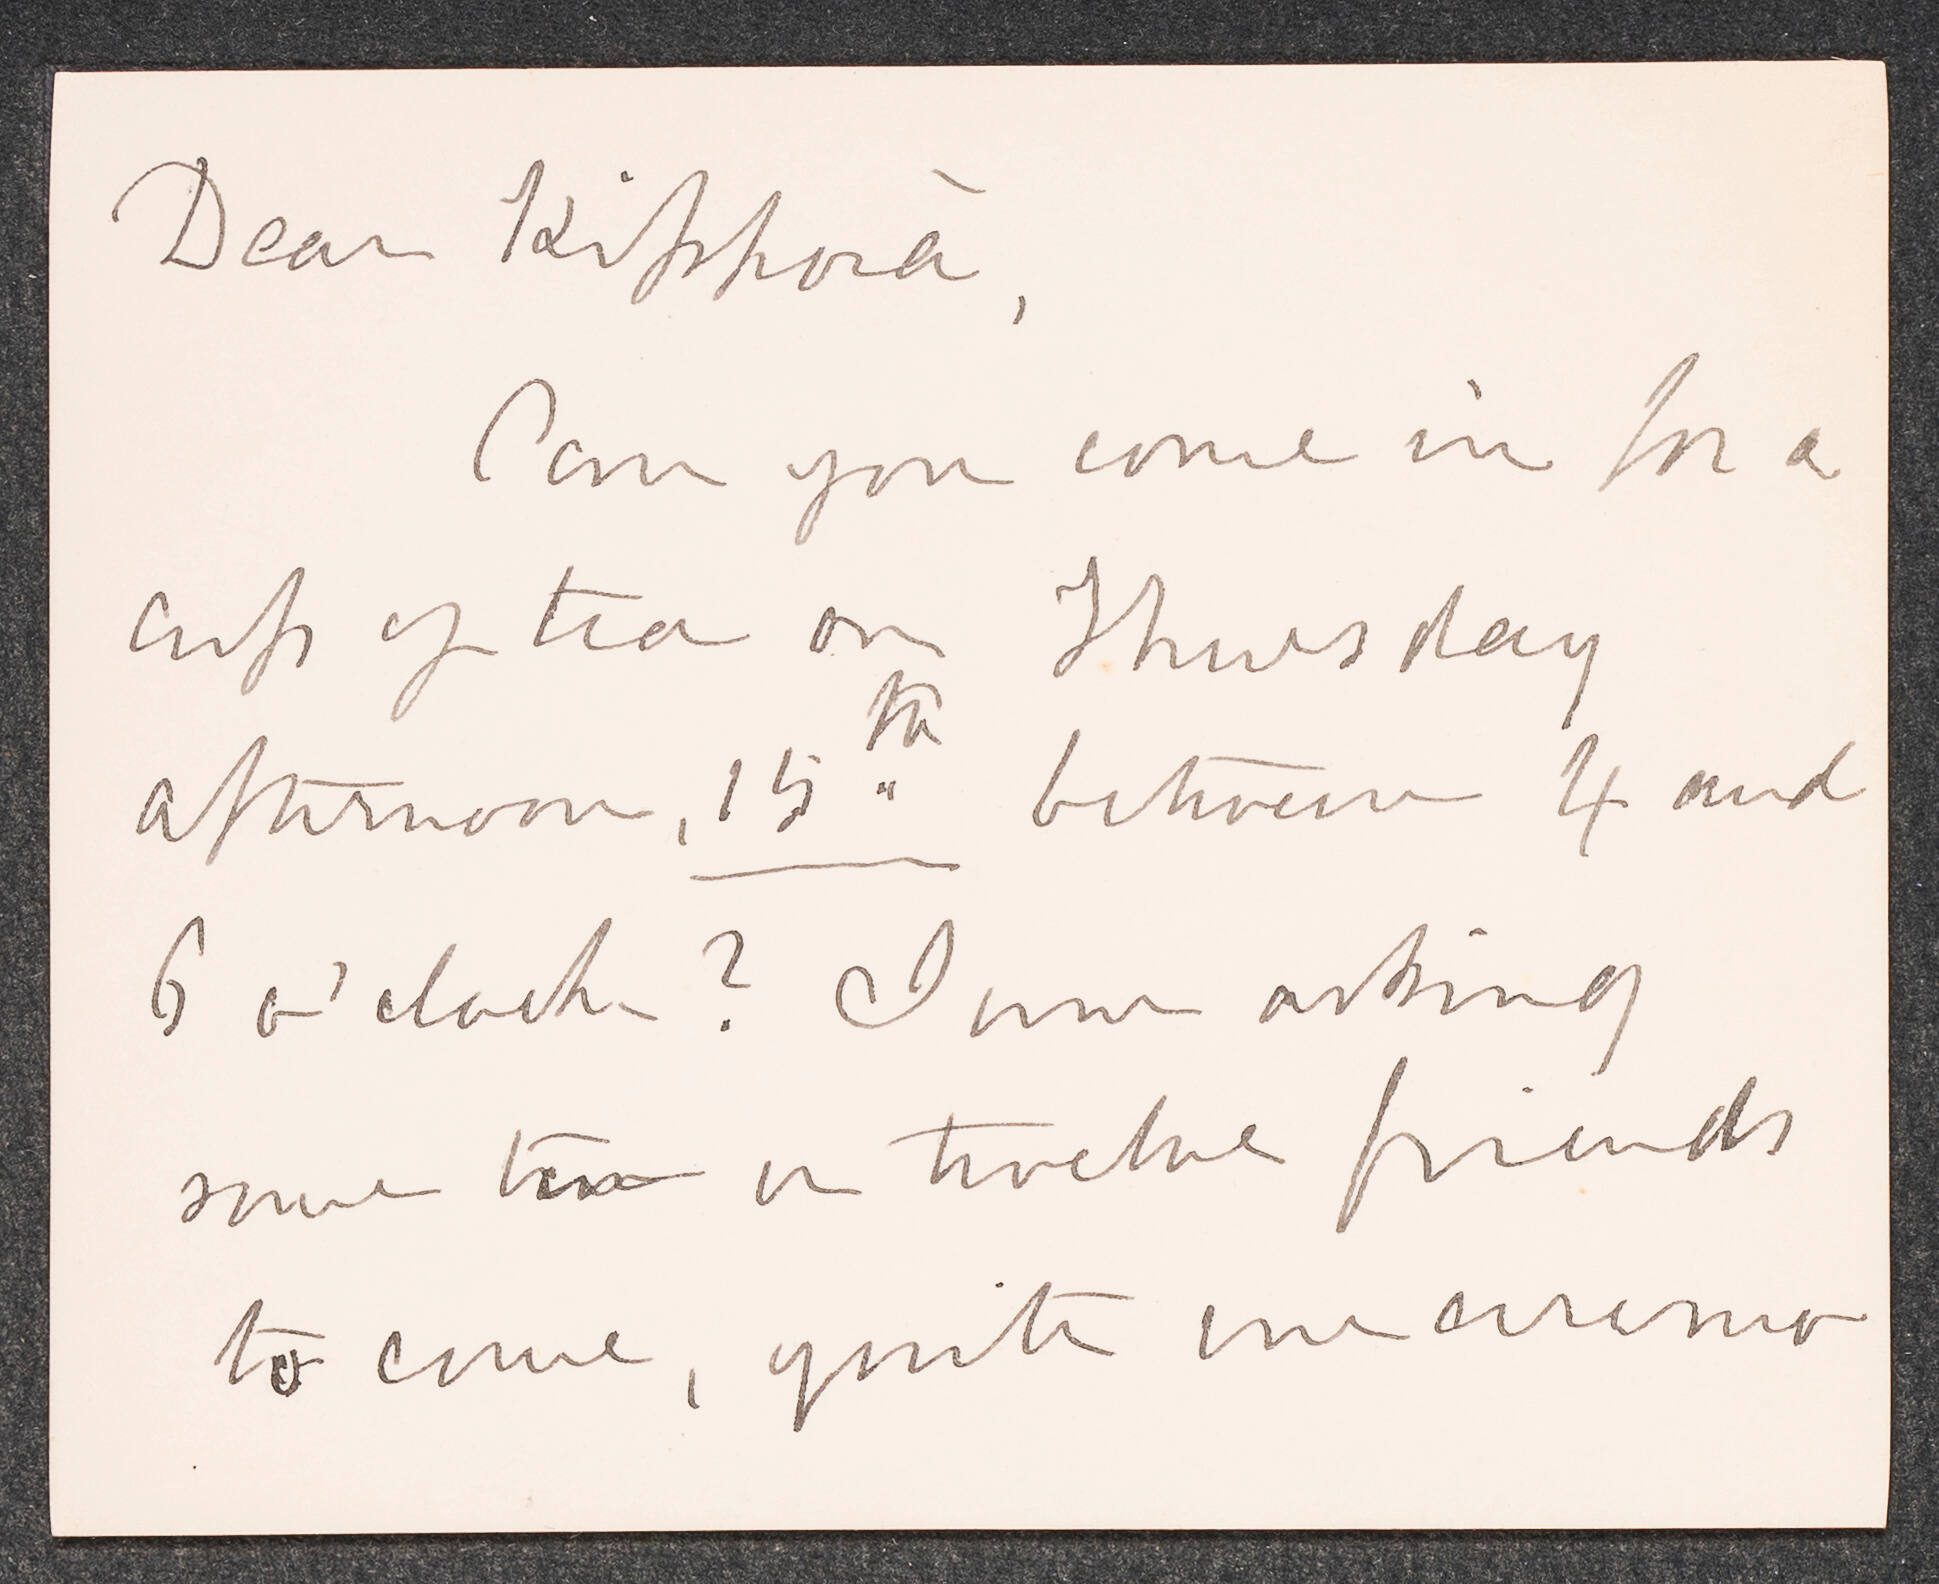 Dear Kipphorā,
Can you come in for a
cup of tea on Thursday
afternoon, 15th between 4 and
6 o'clock? I am asking
some ten or twelve friends
to come, quite unceremo